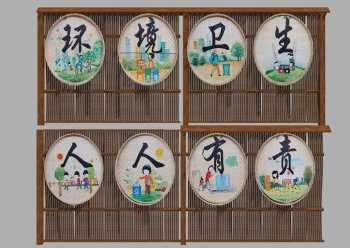 环境卫生
人人有责